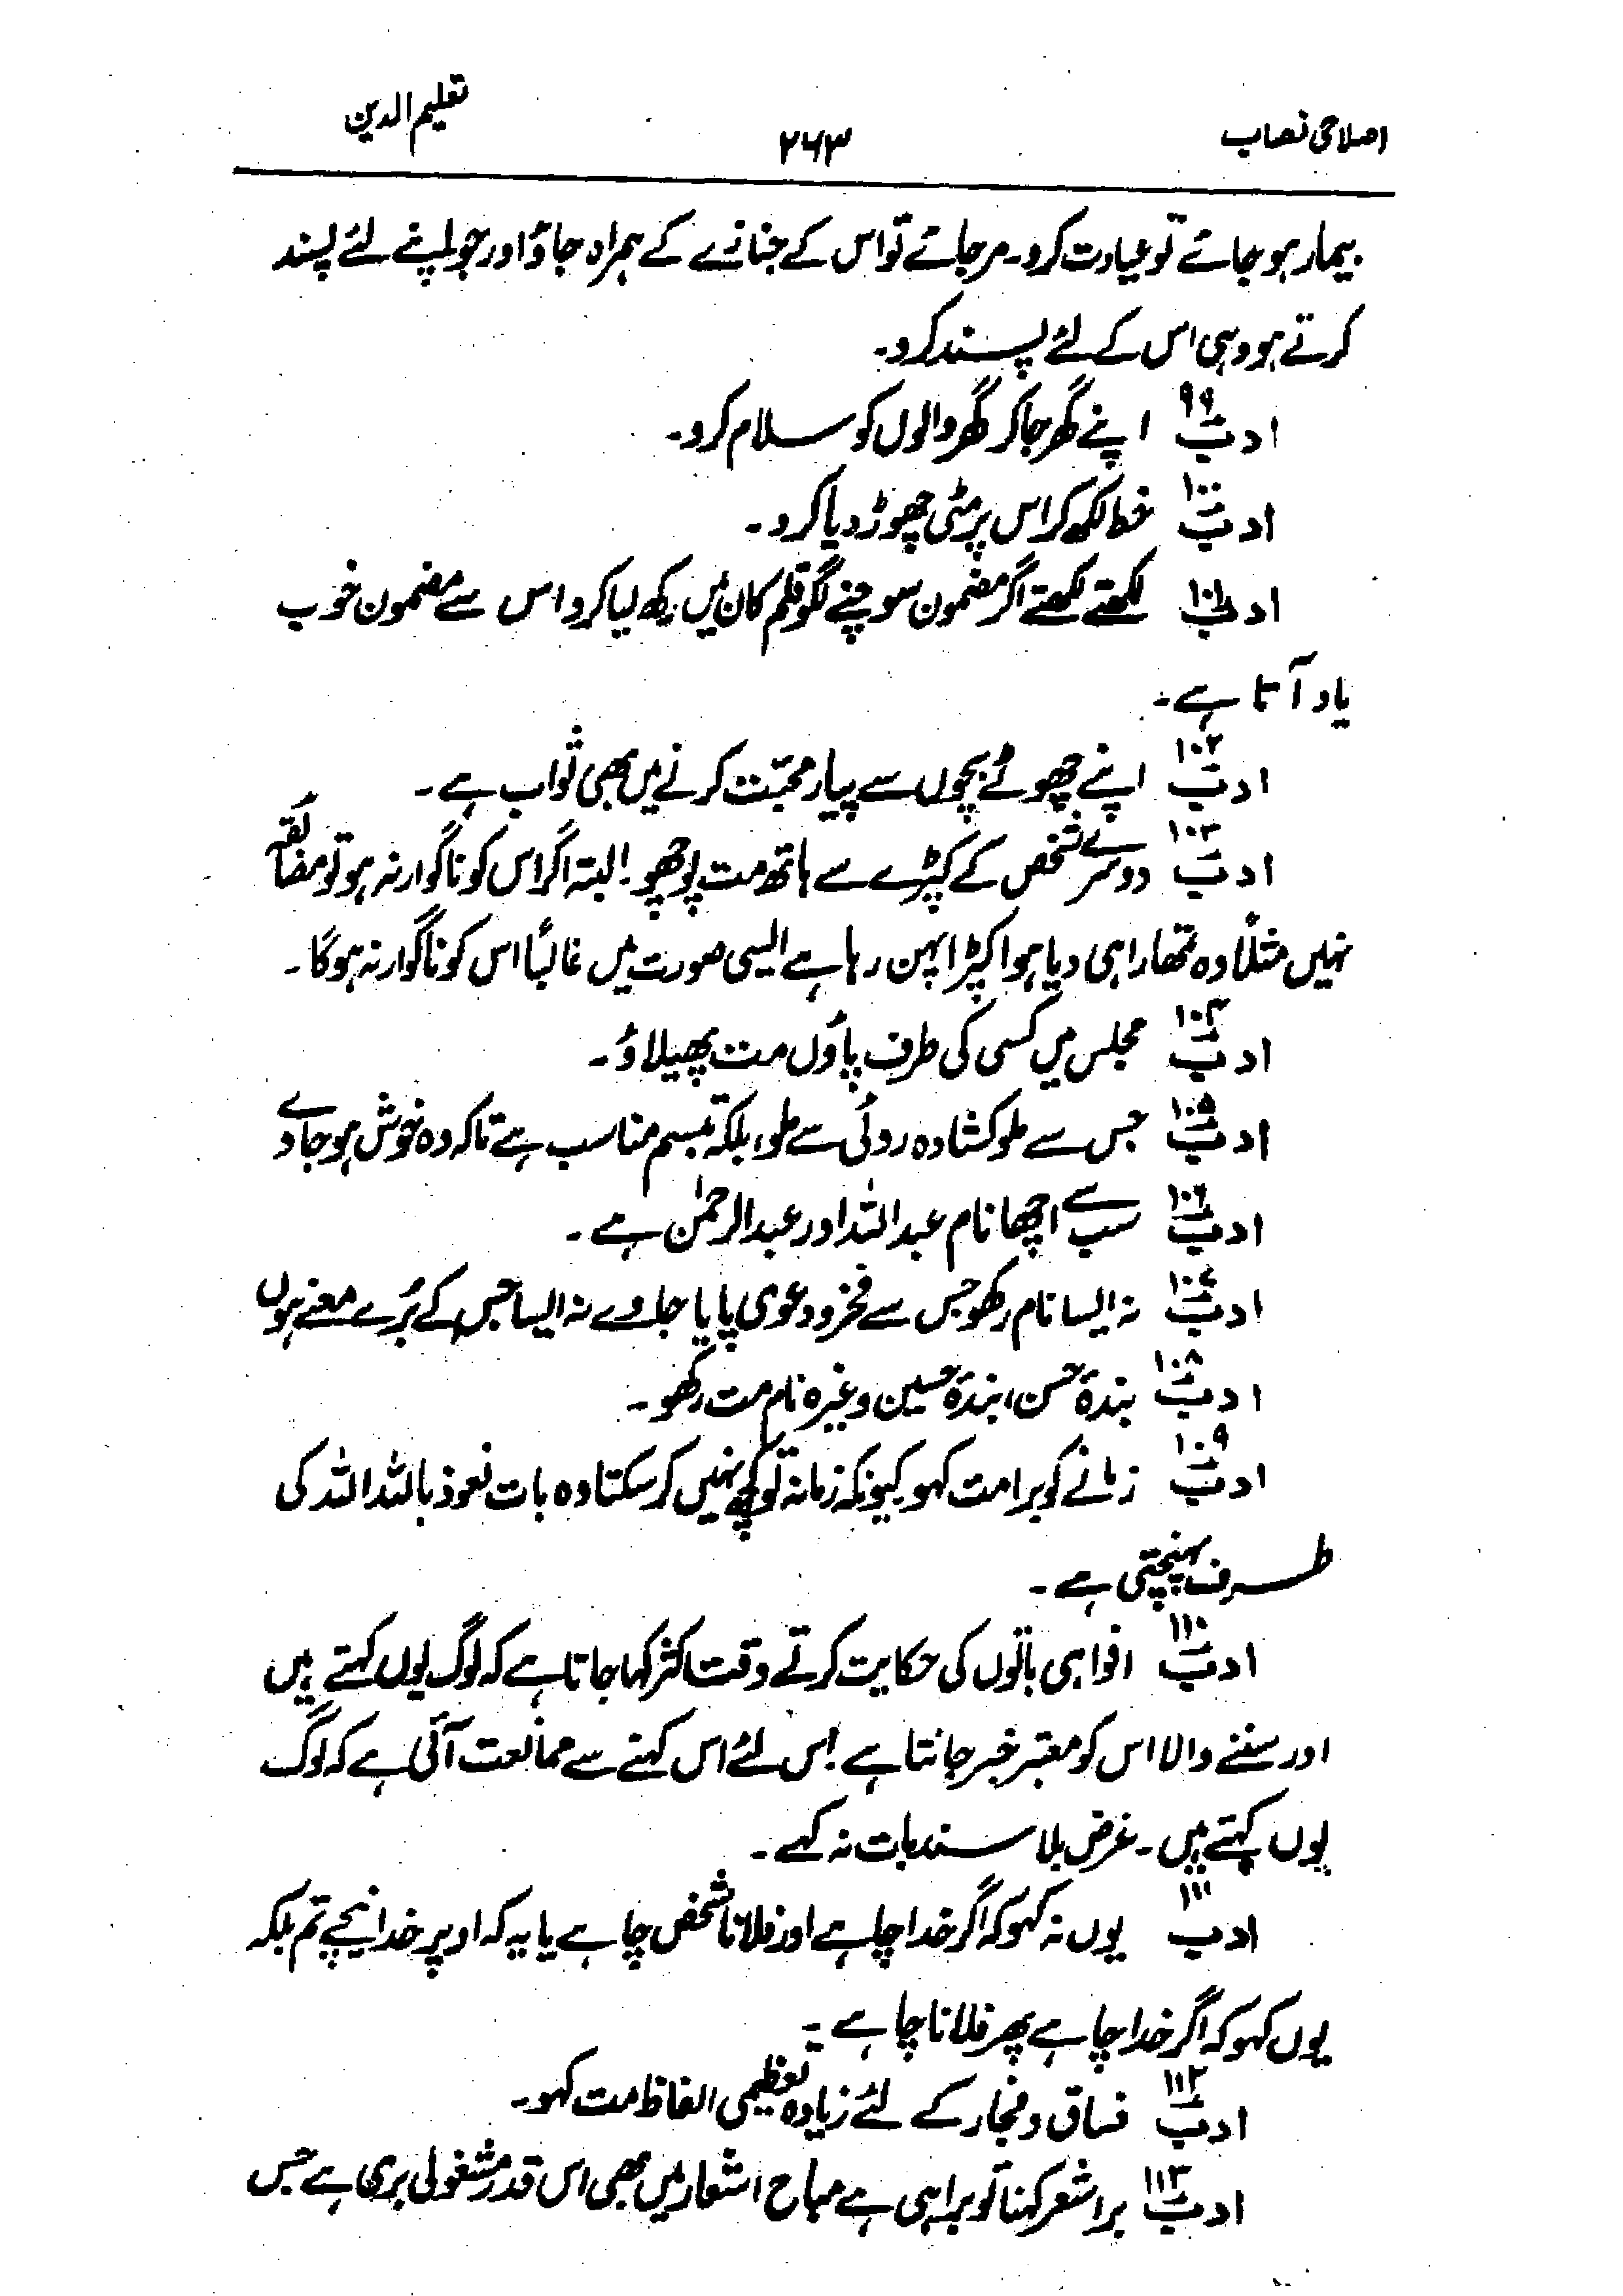 اصلاحی نصاب ۲۶۳ تعلیم الدین
بیمار ہو جائے تو عیادت کرو۔ مر جائے تو اس کے جنازے کے ہمراہ جاؤ اور جو اپنے لئے پسند
کرتے ہو وہی اس کے لئے پسند کرو۔
ادب ۹۹ اپنے گھر جا کر گھر والوں کو سلام کرو۔
ادب ۱۰۰ خط لکھ کر اس پر مٹی چھوڑ دیا کرو۔
ادب ۱۰۱ لکھتے لکھتے اگر مضمون سوچنے لگو قلم کان میں رکھ لیا کرو اس سے مضمون خوب
یاد آتا ہے۔
ادب ۱۰۲ اپنے چھوٹے بچوں سے پیار محبت کرنے میں بھی ثواب ہے۔
ادب ۱۰۳ دوسرے شخص کے کپڑے سے ہاتھ مت پوچھو۔ البتہ اگر اس کو ناگوار نہ ہو تو مضائقہ
نہیں مثلاً وہ تمھارا ہی دیا ہوا کپڑا پہن رہا ہے ایسی صورت میں غالباً اس کو ناگوار نہ ہوگا۔
ادب ۱۰۴ مجلس میں کسی کی طرف پاؤں مت پھیلاؤ۔
ادب ۱۰۵ جس سے ملو کشادہ روئی سے ملو، بلکہ تبسم مناسب ہے تاکہ وہ خوش ہو جاوے
ادب ۱۰۶ سب سے اچھا نام عبداللہ اور عبدالرحمٰن ہے۔
ادب ۱۰۷ نہ ایسا نام رکھو جس سے فخر و دعوی پایا جاوے نہ ایسا جس کے بُرے معنے ہوں
ادب ۱۰۸ بندۂ حسن، بندۂ حسین وغیرہ نام مت رکھو۔
ادب ۱۰۹ زمانے کو برا مت کہو کیونکہ زمانہ تو کچھ نہیں کر سکتا وہ بات نعوذ باللہ اللہ کی
طرف پہنچتی ہے۔
ادب ۱۱۰ افواہی باتوں کی حکایت کرتے وقت اکثر کہا جاتا ہے کہ لوگ یوں کہتے ہیں
اور سننے والا اس کو معتبر خبر جانتا ہے، اس لئے اس کہنے سے ممانعت آئی ہے کہ لوگ
یوں کہتے ہیں۔ غرض بلا سند بات نہ کہے۔
ادب ۱۱۱ یوں نہ کہو کہ اگر خدا چاہے اور فلانا شخص چاہے یا یہ کہ اوپر خدا نیچے تم بلکہ
یوں کہو کہ اگر خدا چاہے پھر فلانا چاہے۔
ادب ۱۱۲ فساق و فجار کے لئے زیادہ تعظیمی الفاظ مت کہو۔
ادب ۱۱۳ برا شعر کہنا تو برا ہی ہے مباح اشعار میں بھی اس قدر مشغولی بری ہے جس